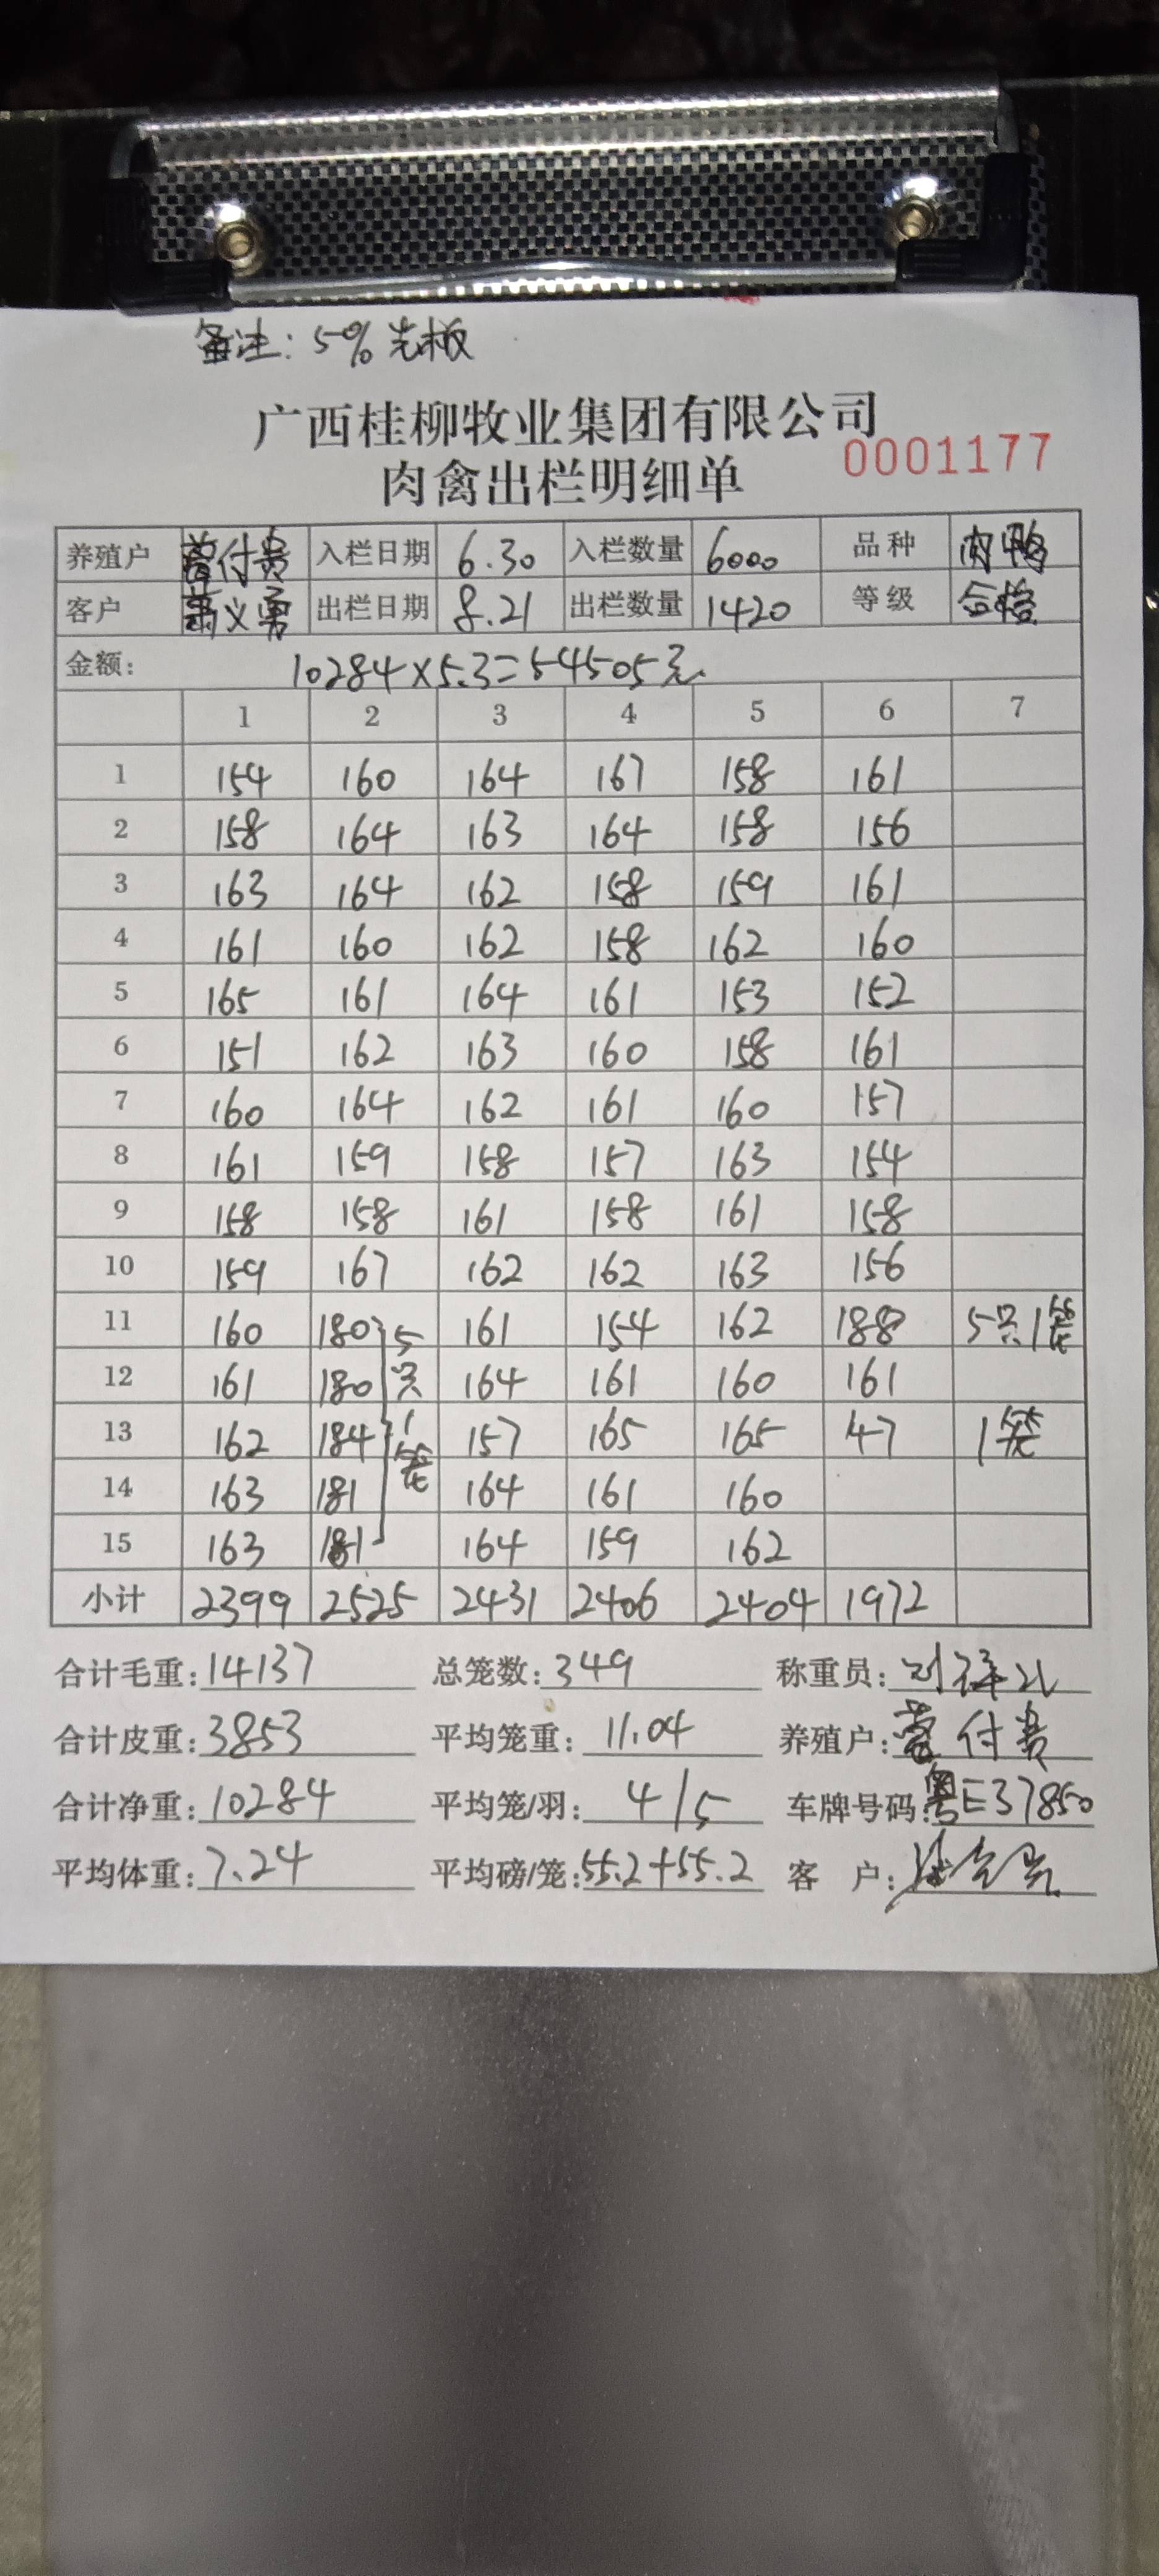 备注: 5% 光板
广西桂柳牧业集团有限公司
肉禽出栏明细单 0001177
养殖户 付贵 入栏日期 6.30 入栏数量 6000 品种 肉鸭
客户 萧义勇 出栏日期 8.21 出栏数量 1420 等级 合格
金额: 10284×5.3=54505元
1 2 3 4 5 6 7
1 154 160 164 167 158 161
2 158 164 163 164 158 156
3 163 164 162 158 159 161
4 161 160 162 158 162 160
5 165 161 164 161 153 152
6 151 162 163 160 158 161
7 160 164 162 161 160 157
8 161 159 158 157 163 154
9 158 158 161 158 161 158
10 159 167 162 162 163 156
11 160 180 5 161 154 162 188 5只1笼
12 161 180 只 164 161 160 161
13 162 184 1笼 157 165 165 47 1笼
14 163 181 164 161 160
15 163 181 164 159 162
小计 2399 2525 2431 2406 2404 1972
合计毛重: 14137 总笼数: 349 称重员:
合计皮重: 3853 平均笼重: 11.04 养殖户: 付贵
合计净重: 10284 平均笼/羽: 4/5 车牌号码: 粤E37850
平均体重: 7.24 平均磅/笼: 55.2+55.2 客 户: